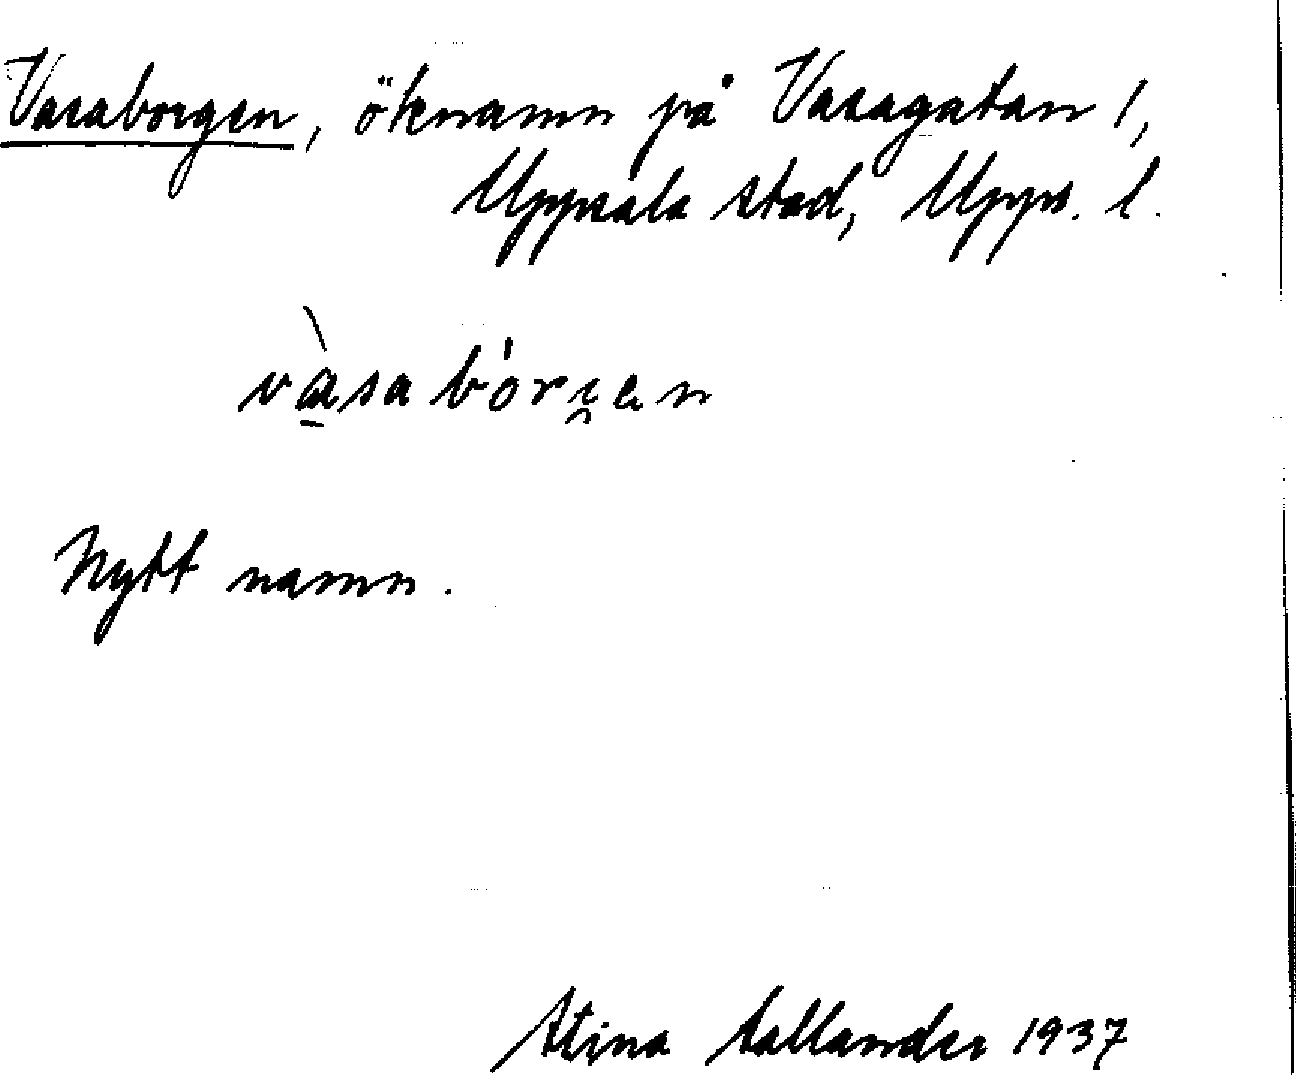 Vasaborgen, öknamn på Vasagatan 1,
Uppsala stad, Upps. l.
vàsabór
Nytt namn.
Stina 1937